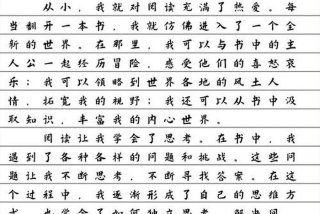 从小，我就对阅读充满了热爱。每
当翻开一本书，我就仿佛进入了一个全
新的世界。在那里，我可以与书中的主
人公一起经历冒险，感受他们的喜怒哀
乐；我可以领略到世界各地的风土人
情，拓宽我的视野；我还可以从书中汲
取知识，丰富我的内心世界。
阅读让我学会了思考。在书中，我
遇到了各种各样的问题和挑战。这些问
题让我不断思考、不断寻找答案。在这
个过程中，我逐渐形成了自己的思维方
式，也学会了如何独立思考、解决问